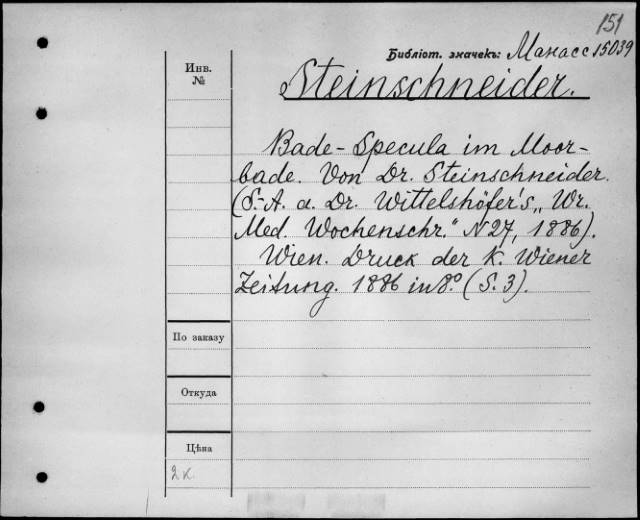 151
Библіот. значекъ: Манасс 15039
Инв.
№
Steinschneider.
Bade-Specula im Moor-
bade. Von Dr. Steinschneider.
(S.-A. a. Dr. Wittelshöfer's „Wr.
Med. Wochenschr." N 27, 1886).
Wien. Druck der K. Wiener
Zeitung. 1886 in 8º. (S. 3).
По заказу
Откуда
Цѣна
2 к.